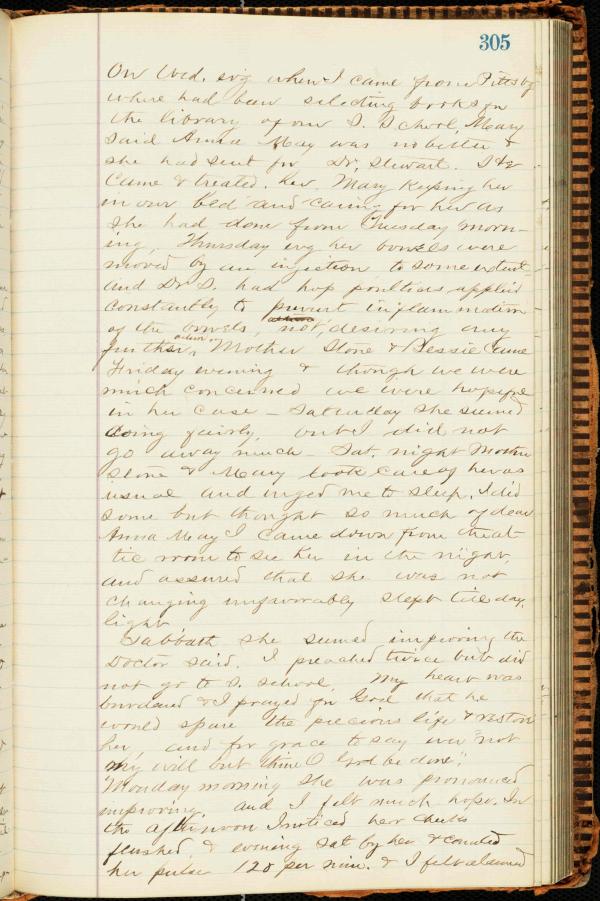 305
On Wed. evg when I came from Pittsbg
where had been selecting books for
the library of our S. School, Mary
said Anna May was no better &
she had sent for Dr. Stewart. S &
Came & treated her. Mary Keeping her
in our bed and caring for her as
she had done from Tuesday morn-
ing, Thursday evg her bowels were
moved by an injection to some extent
and Dr S. had hop poultices applied
constantly to prevent inflammation
of the bowels, not desiring any
further action. Mother Stone & Bessie Came
Friday evening & though we were
much concerned we were hopeful
in her case - Saturday she seemed
doing fairly, but I did not
go away much - Sat. night Mother
Stone & Mary took care of her as
usual and urged me to sleep. I did
some but thought so much of dear
Anna May I came down from the at-
tic room to see her in the night,
and assured that she was not
changing unfavorably slept till day-
light
Sabbath she seemed improving the
Doctor said. I preached twice but did
not go to S. School. My heart was
burdened & I prayed for God that he
would spare the precious life & restore
her, and for grace to say "not
my will but thine O Lord be done".
Monday morning she was pronounced
improving and I felt much hope. In
the afternoon I noticed her cheeks
flushed, & evening sat by her & counted
her pulse 120 per min. & I felt alarmed